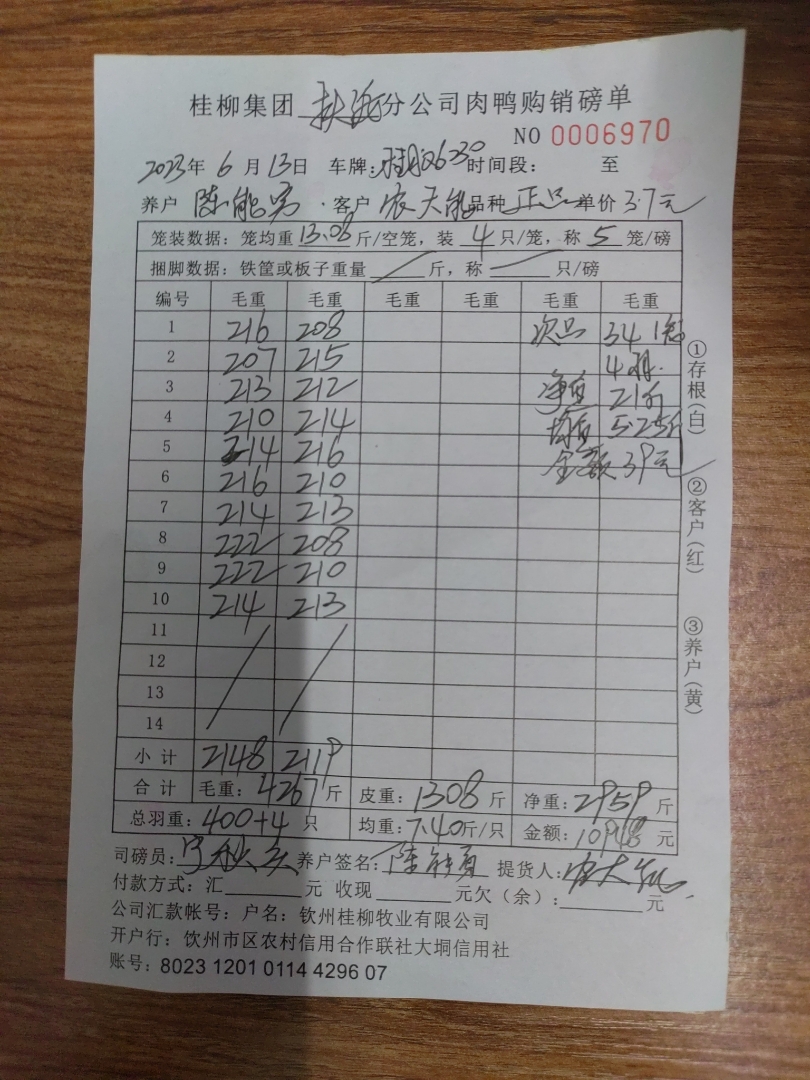 桂柳集团 分公司肉鸭购销磅单
NO 0006970
2023年 6 月 13日 车牌: 时间段: 至
养户 陈能 客户 农天能 品种 正品 单价 3.7元
笼装数据: 笼均重 13.08 斤/空笼，装 4 只/笼，称 5 笼/磅
捆脚数据: 铁筐或板子重量 斤，称 只/磅
编号 毛重 毛重 毛重 毛重 毛重 毛重
1 216 208 次品 34 1笼
2 207 215 4只.
3 213 212 净重 21斤
4 210 214 均重 5.25斤
5 214 216 金额 39元
6 216 210
7 214 213
8 222 208
9 222 210
10 214 213
11
12
13
14
小计 2148 2119
合计 毛重: 4267 斤 皮重: 1308 斤 净重: 2959 斤
总羽重: 400+4 只 均重: 7.40 斤/只 金额: 10948 元
司磅员: 养户签名: 陈能 提货人: 农天能
付款方式: 汇 元 收现 元欠（余）: 元
公司汇款帐号: 户名: 钦州桂柳牧业有限公司
开户行: 钦州市区农村信用合作联社大垌信用社
账号: 8023 1201 0114 4296 07
①存根(白)
②客户(红)
③养户(黄)